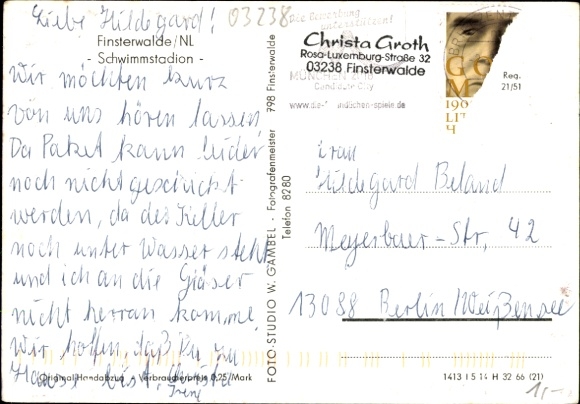 Liebe Hildegard!
03238
Finsterwalde/NL
- Schwimmstadion -
Wir möchten kurz
von uns hören lassen
Da Paket kann leider
noch nicht geschickt
werden, da der Keller
noch unter Wasser steht
und ich an die Gläser
nicht herran komme
Wir hoffen, daß Du zu
Hause bist,
Original-Handabzug Verbraucherpreis 0,25/Mark
FOTO-STUDIO W. GAMBEL - Fotografenmeister 798 Finsterwalde
Telefon 8280
Die Bewerbung
unterstützen!
Christa Groth
Rosa-Luxemburg-Straße 32
03238 Finsterwalde
MÜNCHEN
Candidate City
Reg.
21/51
Frau
Hildegard Beland
Meyerbeer-Str, 42
13088 Berlin/Weißensee
1413 I 5 14 H 32 66 (21)
1,-